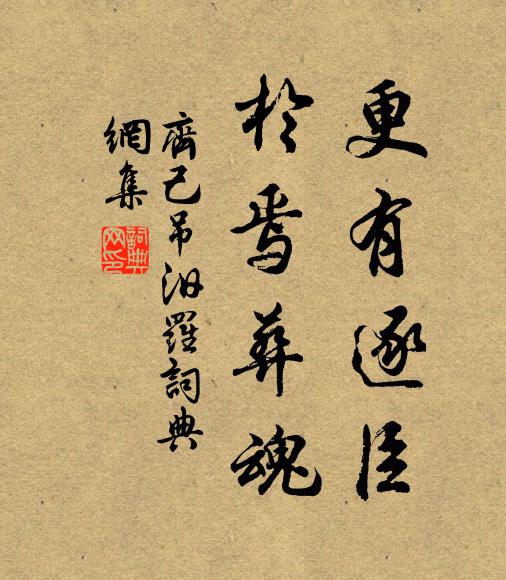 更有逐臣
於焉葬魂
齊己吊汨羅詞典
網集
詞典
网印